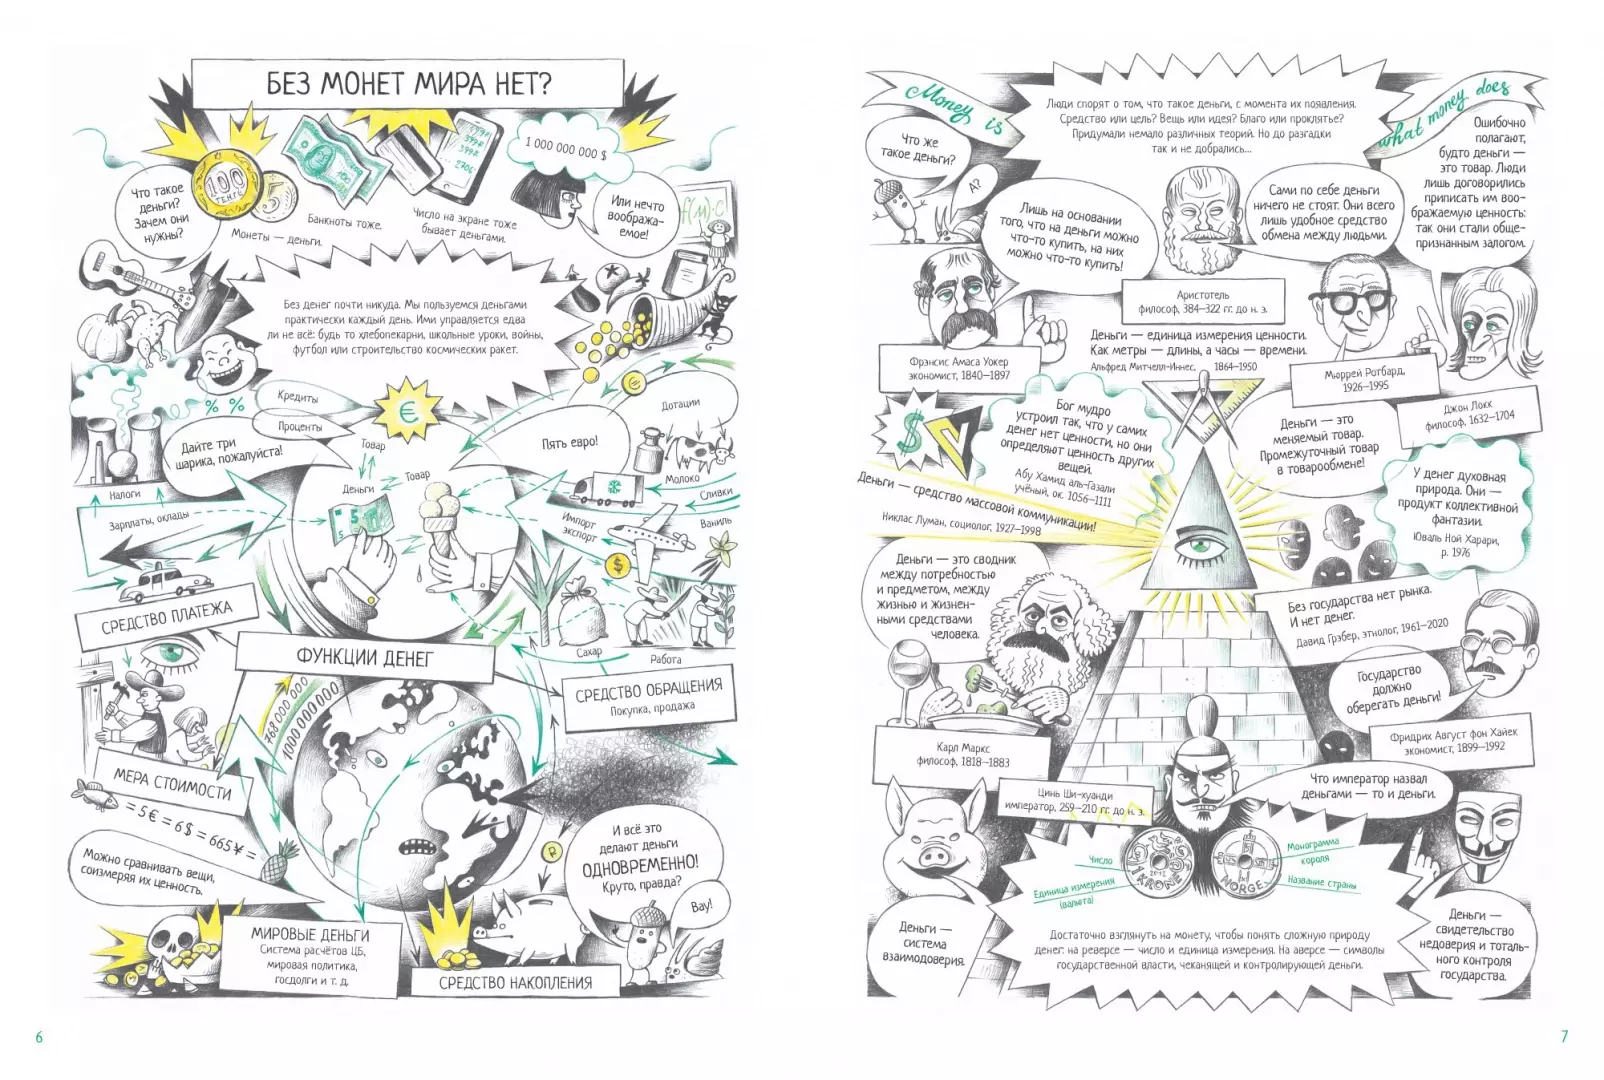 БЕЗ МОНЕТ МИРА НЕТ?
1 000 000 000 $
100
ТЕНГЕ
5
Что такое
деньги?
Зачем они
нужны?
Монеты — деньги.
Банкноты тоже.
Число на экране тоже
бывает деньгами.
Или нечто
вообража-
емое!
Без денег почти никуда. Мы пользуемся деньгами
практически каждый день. Ими управляется едва
ли не всё: будь то хлебопекарни, школьные уроки, войны,
футбол или строительство космических ракет.
% %
Кредиты
Проценты
€
€
Дотации
Дайте три
шарика, пожалуйста!
Товар
Товар
Деньги
Пять евро!
Молоко
Сливки
Ваниль
Импорт
экспорт
$
Налоги
Зарплаты, оклады
5
5
СРЕДСТВО ПЛАТЕЖА
ФУНКЦИИ ДЕНЕГ
Сахар
Работа
СРЕДСТВО ОБРАЩЕНИЯ
Покупка, продажа
768 000 000
1000 000 000
МЕРА СТОИМОСТИ
= 5 € = 6 $ = 665 ¥ =
Можно сравнивать вещи,
соизмеряя их ценность.
И всё это
делают деньги
ОДНОВРЕМЕННО!
Круто, правда?
Вау!
МИРОВЫЕ ДЕНЬГИ
Система расчётов ЦБ,
мировая политика,
госдолги и т. д.
СРЕДСТВО НАКОПЛЕНИЯ
6
Money is
what money does
Люди спорят о том, что такое деньги, с момента их появления.
Средство или цель? Вещь или идея? Благо или проклятье?
Придумали немало различных теорий. Но до разгадки
так и не добрались...
Что же
такое деньги?
А?
Лишь на основании
того, что на деньги можно
что-то купить, на них
можно что-то купить!
Фрэнсис Амаса Уокер
экономист, 1840–1897
Сами по себе деньги
ничего не стоят. Они всего
лишь удобное средство
обмена между людьми.
Аристотель
философ, 384–322 гг. до н. э.
Ошибочно
полагают,
будто деньги —
это товар. Люди
лишь договорились
приписать им воо-
бражаемую ценность:
так они стали обще-
признанным залогом.
Джон Локк
философ, 1632–1704
Деньги — единица измерения ценности.
Как метры — длины, а часы — времени.
Альфред Митчелл-Иннес, 1864–1950
Мюррей Ротбард,
1926–1995
Деньги — это
меняемый товар.
Промежуточный товар
в товарообмене!
$
Бог мудро
устроил так, что у самих
денег нет ценности, но они
определяют ценность других
вещей.
Абу Хамид аль-Газали
учёный, ок. 1056–1111
Деньги — средство массовой коммуникации!
Никлас Луман, социолог, 1927–1998
У денег духовная
природа. Они —
продукт коллективной
фантазии.
Юваль Ной Харари,
р. 1976
Деньги — это сводник
между потребностью
и предметом, между
жизнью и жизнен-
ными средствами
человека.
Карл Маркс
философ, 1818–1883
Без государства нет рынка.
И нет денег.
Давид Грэбер, этнолог, 1961–2020
Государство
должно
оберегать деньги!
Фридрих Август фон Хайек
экономист, 1899–1992
Цинь Ши-хуанди
император, 259–210 гг. до н. э.
Что император назвал
деньгами — то и деньги.
Число
Единица измерения
(валюта)
1
KRONE
2012
NORGE
Монограмма
короля
Название страны
Деньги —
система
взаимодоверия.
Достаточно взглянуть на монету, чтобы понять сложную природу
денег: на реверсе — число и единица измерения. На аверсе — символы
государственной власти, чеканящей и контролирующей деньги.
Деньги —
свидетельство
недоверия и тоталь-
ного контроля
государства.
7